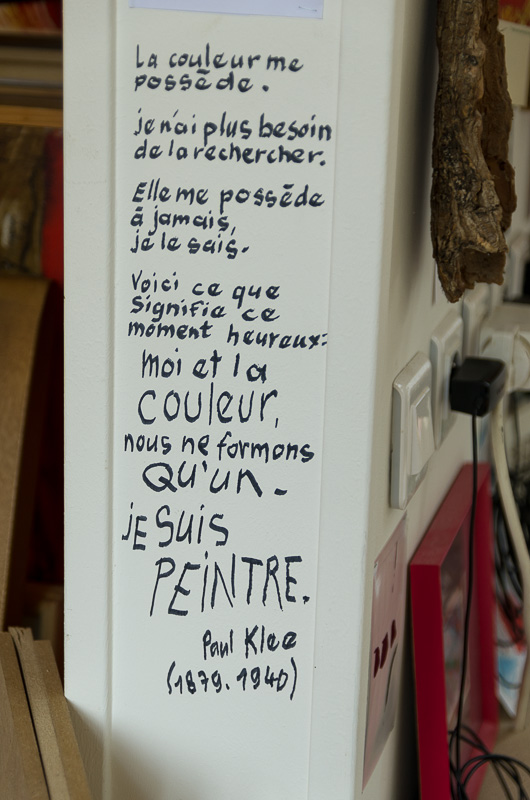 La couleur me
possède.
je n'ai plus besoin
de la rechercher.
Elle me possède
à jamais,
je le sais.
Voici ce que
Signifie ce
moment heureux:
moi et la
couleur,
nous ne formons
Qu'un.
jE SUiS
PEiNTRE.
Paul Klee
(1879.1940)